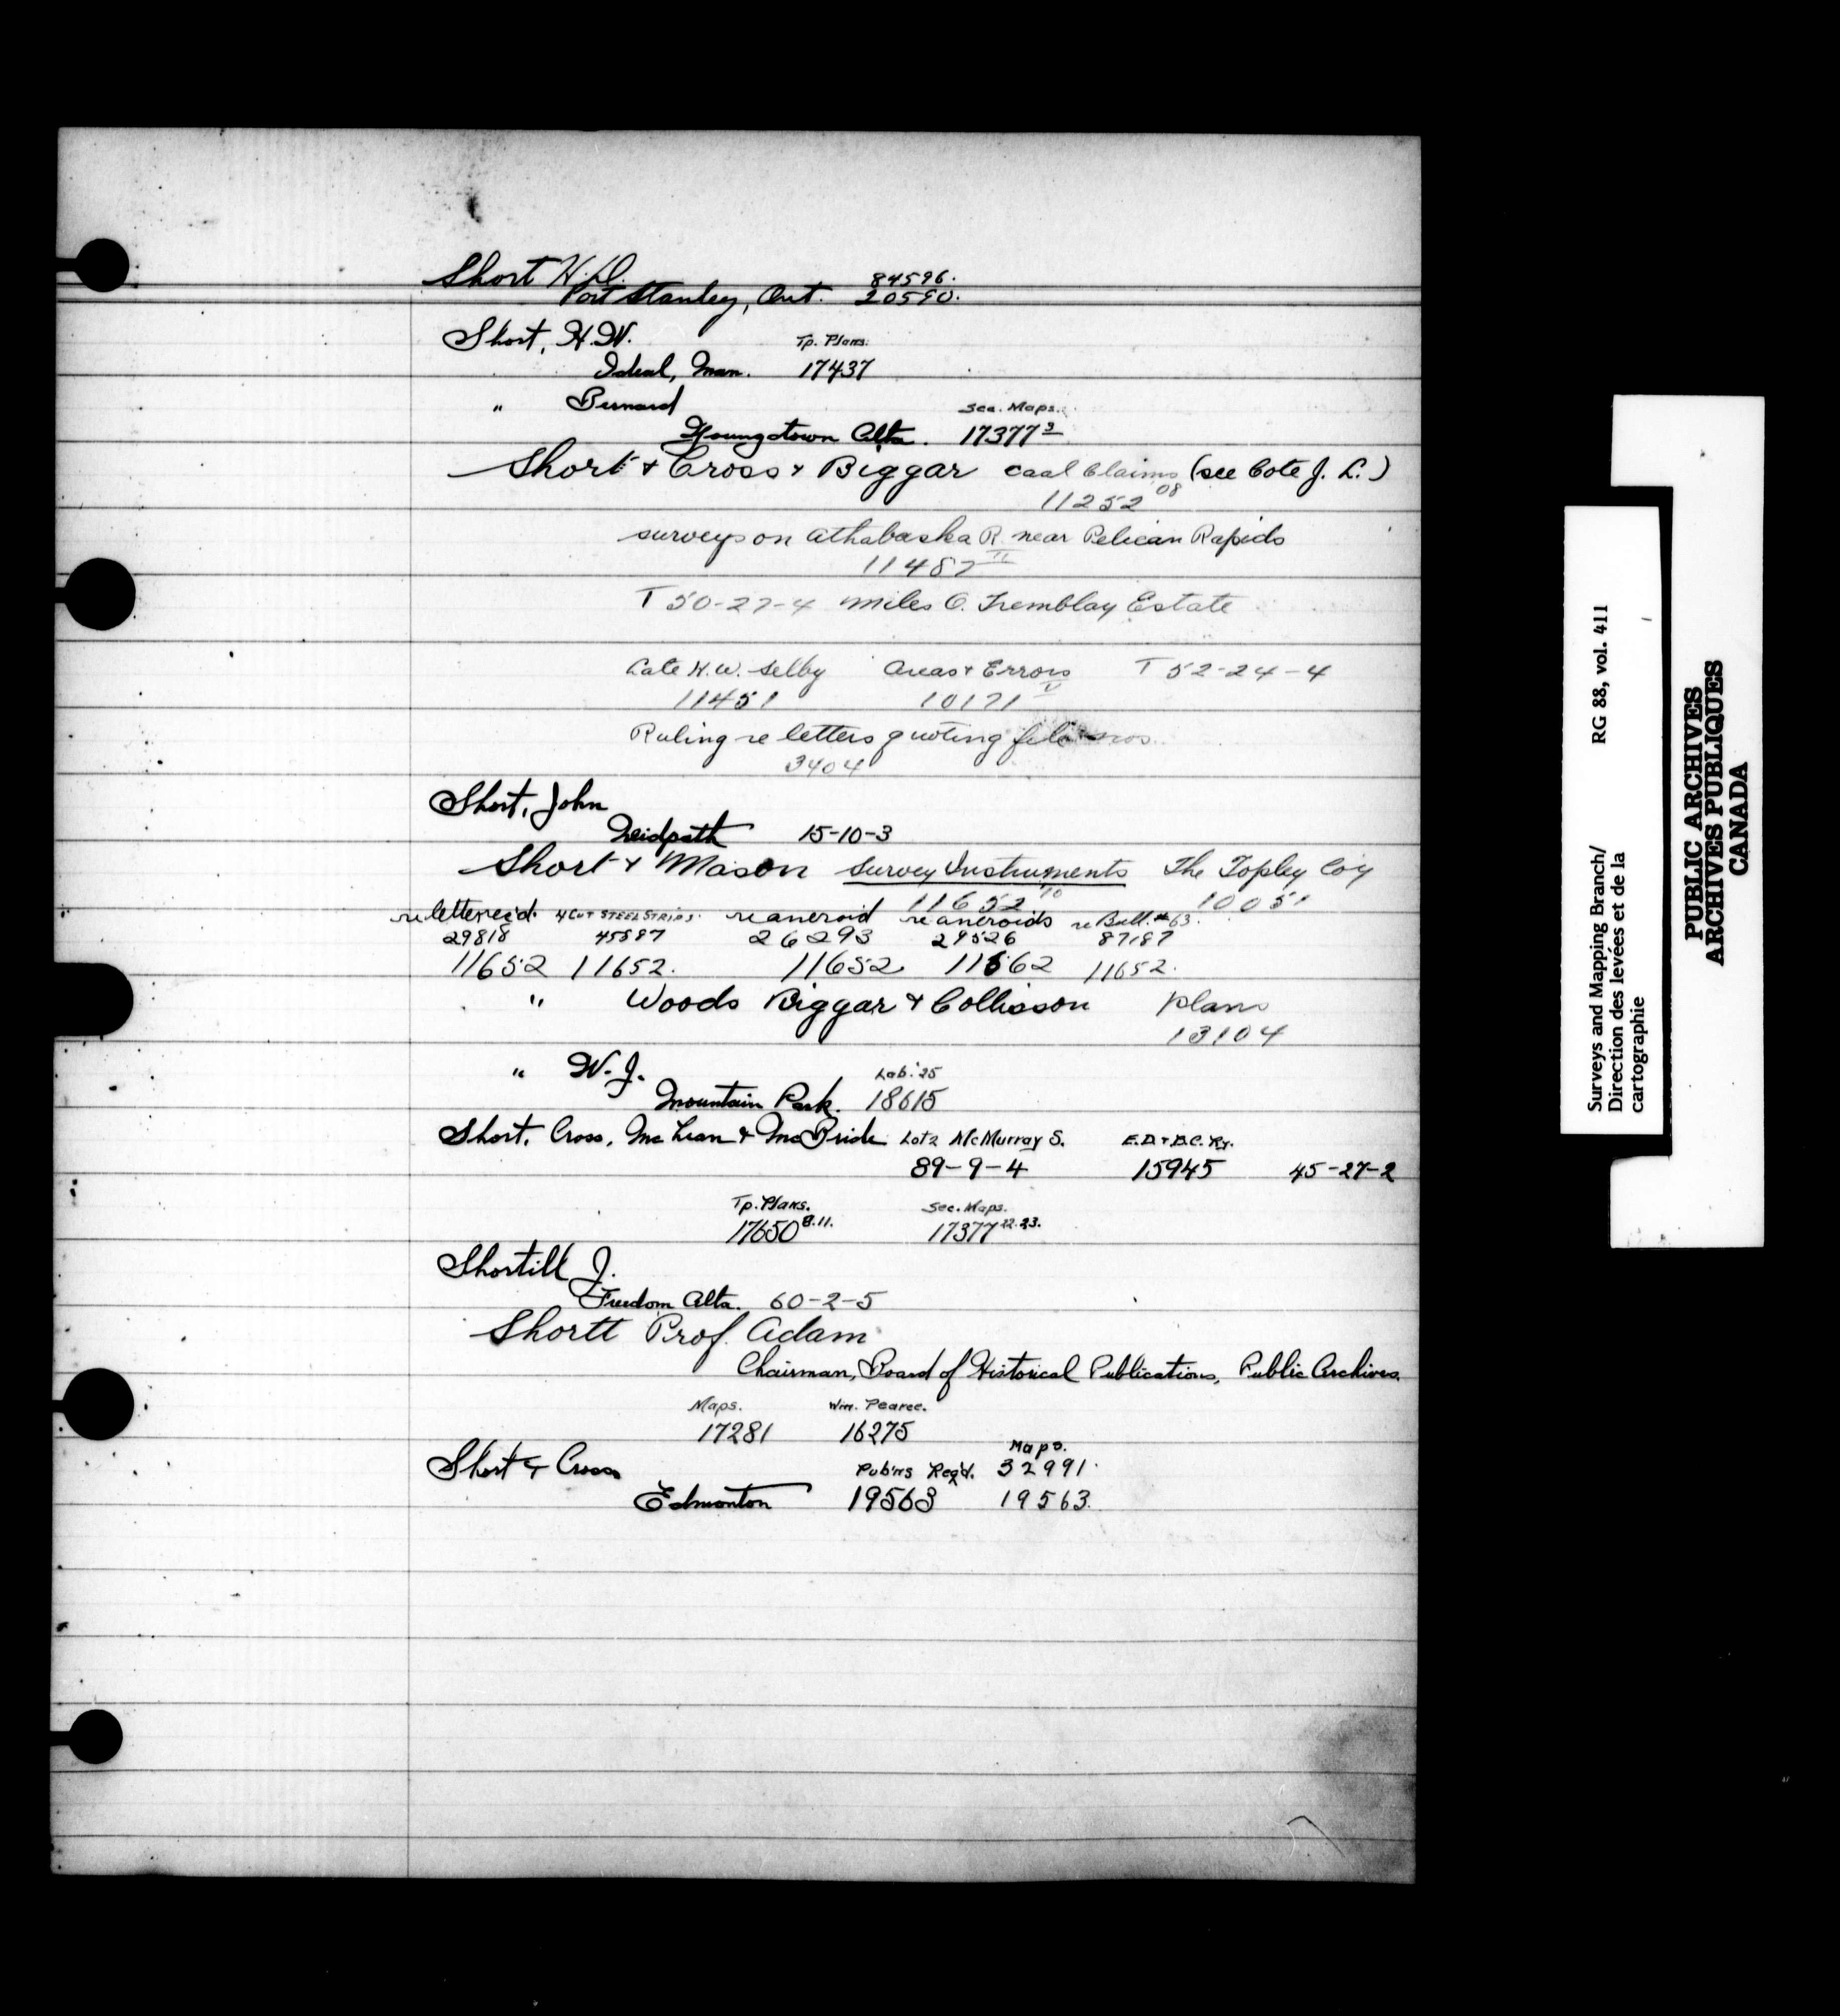 Short H.D. 84596.
Port Stanley, Ont. 20590.
Short, H.W. Tp. Plans.
Ideal, Man. 17437
" Bernard Sec. Maps.
Youngstown Alta. 17377 3
Short & Cross & Biggar Coal Claims (see Cote J. L.)
11252 08
surveys on Athabaska R. near Pelican Rapids
11487 II
T 50-27-4 Miles O. Tremblay Estate
Late H.W. Selby Areas & Errors T 52-24-4
11451 10171 V
Ruling re letters quoting file nos.
3404
Short, John
Neidpath 15-10-3
Short & Mason Survey Instruments The Topley Coy
11652 10 10051
re letter rec'd. 4 CUT STEEL STRIPS. re aneroid re aneroids re Bull. #63.
29818 45587 26293 29526 87187
11652 11652. 11652 11662 11652.
" Woods Biggar & Collisson plans
13104
" W. J. Lab. '25
Mountain Park. 18615
Short, Cross, McLean & McBride Lot 2 McMurray S. E.D. & B.C. Ry.
89-9-4 15945 45-27-2
Tp. Plans. Sec. Maps.
17650 8.11. 17377 22.23.
Shortill J.
Freedom Alta. 60-2-5
Shortt Prof. Adam
Chairman, Board of Historical Publications, Public Archives.
Maps. Wm. Pearce.
17281 16275
Maps.
Short & Cross Pub'ns Req'd. 32991.
Edmonton 19563 19563.
Surveys and Mapping Branch/ RG 88, vol. 411
Direction des levées et de la
cartographie
PUBLIC ARCHIVES
ARCHIVES PUBLIQUES
CANADA